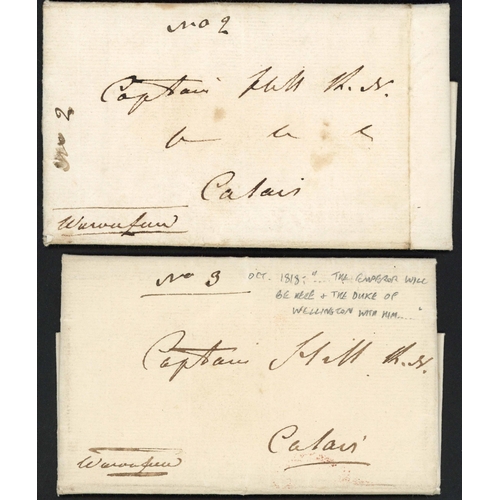 No 2
Captain Hill R.N.
Calais
No 2
No 3
Oct. 1818: "... THE EMPEROR WILL
BE HERE & THE DUKE OF
WELLINGTON WITH HIM....."
Captain Hill R.N.
Calais